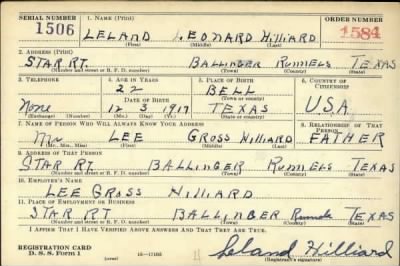 SERIAL NUMBER 1. NAME (Print) ORDER NUMBER
1506 LELAND LEONARD Hilliard 1584
(First) (Middle) (Last)
2. ADDRESS (Print)
STAR RT. BALLINGER RUNNELS TEXAS
(Number and street or R. F. D. number) (Town) (County) (State)
3. TELEPHONE 4. AGE IN YEARS 5. PLACE OF BIRTH 6. COUNTRY OF CITIZENSHIP
22 BELL
DATE OF BIRTH (Town or county)
None 12 3 1917 TEXAS U.S.A.
(Exchange) (Number) (Mo.) (Day) (Yr.) (State or country)
7. NAME OF PERSON WHO WILL ALWAYS KNOW YOUR ADDRESS 8. RELATIONSHIP OF THAT PERSON
Mr LEE GROSS Hilliard FATHER
(Mr., Mrs., Miss) (First) (Middle) (Last)
9. ADDRESS OF THAT PERSON
STAR RT. BALLINGER RUNNELS TEXAS
(Number and street or R. F. D. number) (Town) (County) (State)
10. EMPLOYER'S NAME
LEE GROSS HILLIARD
11. PLACE OF EMPLOYMENT OR BUSINESS
STAR RT BALLINGER Runnels TEXAS
(Number and street or R. F. D. number) (Town) (County) (State)
I AFFIRM THAT I HAVE VERIFIED ABOVE ANSWERS AND THAT THEY ARE TRUE.
REGISTRATION CARD
D. S. S. Form 1 Leland Hilliard
(over) (Registrant's signature)